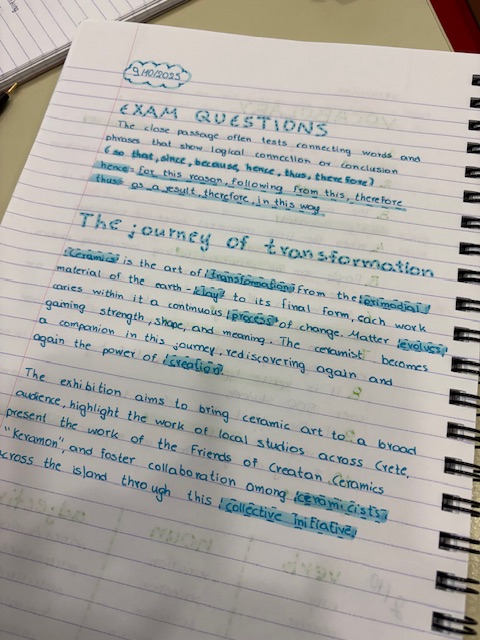 9/10/2025
EXAM QUESTIONS
The close passage often tests connecting words and
phrases that show logical connection or conclusion
(so that, since, because, hence, thus, therefore)
hence = for this reason, following from this, therefore
thus = as a result, therefore, in this way
The journey of transformation
"Ceramics" is the art of transformation. From the primordial
material of the earth - clay - to its final form, each work
caries within it a continuous process of change. Matter evolves,
gaining strength, shape, and meaning. The ceramist becomes
a companion in this journey, rediscovering again and
again the power of creation.
The exhibition aims to bring ceramic art to a broad
audience, highlight the work of local studios across Crete,
present the work of the Friends of Creatan Ceramics
"Keramon", and foster collaboration among ceramicists
across the island through this collective initiative.